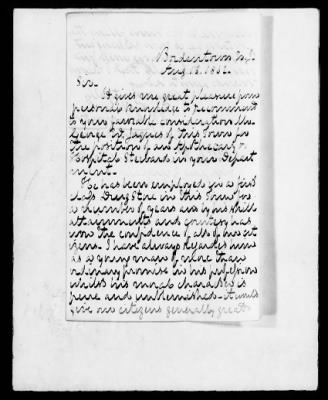 Bordentown N.J.
Aug 18. 1862.
Sir.
It gives me great pleasure from
personal knowledge to recommend
to your favorable consideration Mr
George W. Jaques of this Town for
the position of an Apothecary or
Hospital Steward in your Depart
ment.
He has been employed in a first
class Drug Store in this Town for
a number of years and by his skill
attainments and courtesy has
won the confidence of all of his cit
izens. I have always regarded him
as a young man of more than
ordinary promise in his profession
whilst his moral character is
pure and unblemished. It will
give our citizens generally great